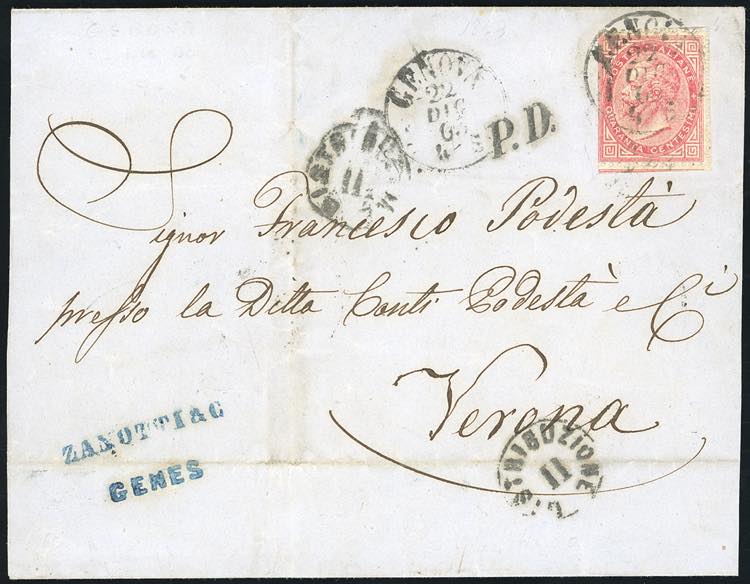 GENOVA
22
DIC
P.D.
GENOVA
22
DIC
POSTE ITALIANE
QUARANTA CENTESIMI
DISTRIBUZ
II
Signor Francesco Podestà
presso la Ditta Conti Podestà e Ci
Verona
ZANOTTI & C
GENES
DISTRIBUZIONE
II